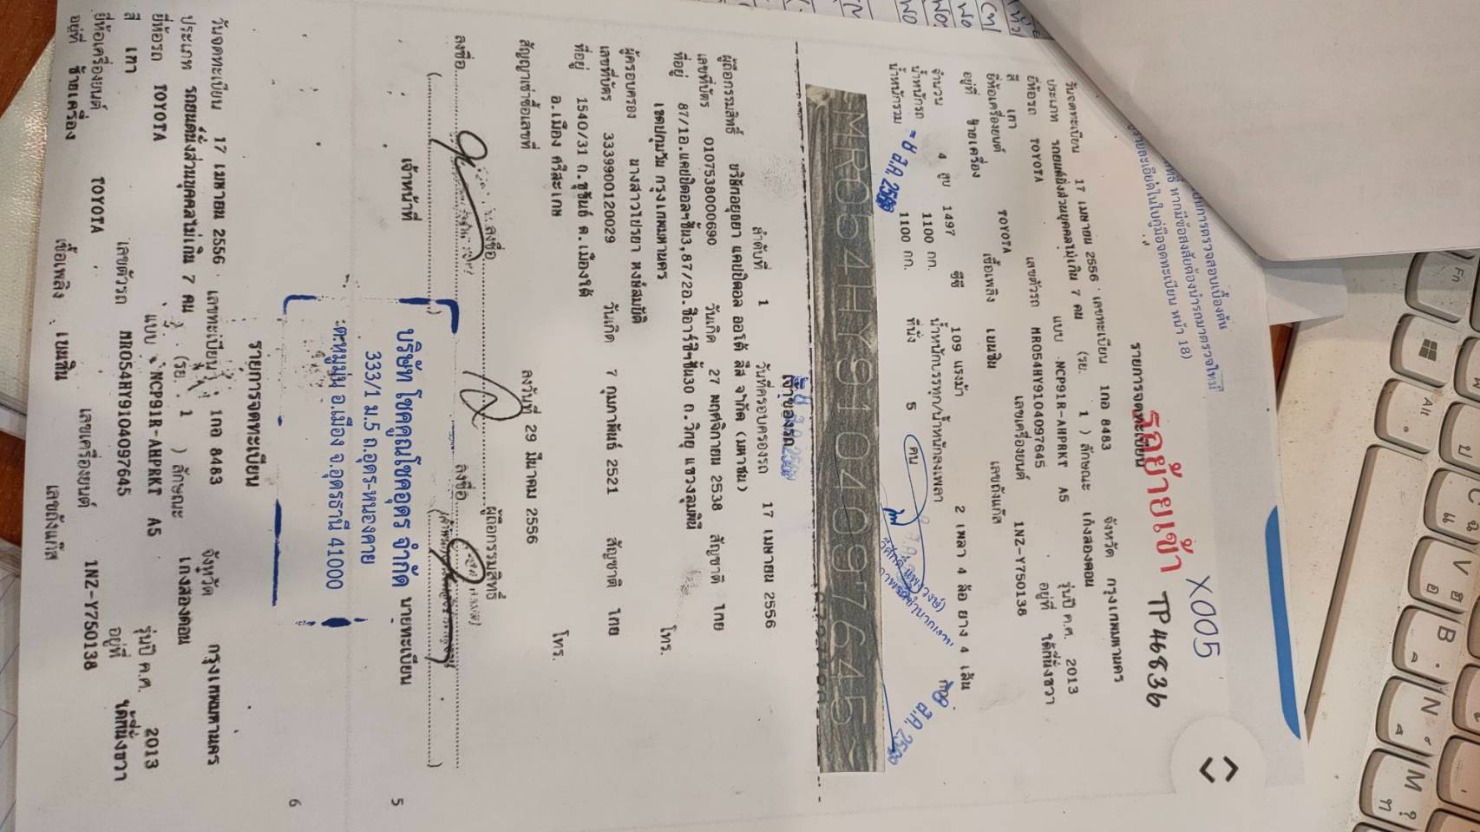 X005
รถย้ายเข้า TP46836
รายการจดทะเบียน
วันจดทะเบียน 17 เมษายน 2556 เลขทะเบียน 1กอ 8483 จังหวัด กรุงเทพมหานคร
ประเภท รถยนต์นั่งส่วนบุคคลไม่เกิน 7 คน (รย. 1 ) ลักษณะ เก๋งสองตอน
ยี่ห้อรถ TOYOTA แบบ NCP91R-AHPRKT A5 รุ่นปี ค.ศ. 2013
สี เทา เลขตัวรถ MR054HY9104097645 อยู่ที่ ใต้ที่นั่งขวา
ยี่ห้อเครื่องยนต์ TOYOTA เลขเครื่องยนต์ 1NZ-Y750138
อยู่ที่ ซ้ายเครื่อง เชื้อเพลิง เบนซิน เลขถังแก๊ส
จำนวน 4 สูบ 1497 ซีซี 109 แรงม้า 2 เพลา 4 ล้อ ยาง 4 เส้น
น้ำหนักรถ 1100 กก. น้ำหนักบรรทุก/น้ำหนักลงเพลา
น้ำหนักรวม 1100 กก. ที่นั่ง 5 คน
MR054HY9104097645
เจ้าของรถ
ลำดับที่ 1 วันที่ครอบครองรถ 17 เมษายน 2556
ผู้ถือกรรมสิทธิ์ บริษัทอยุธยา แคปปิตอล ออโต้ ลีส จำกัด (มหาชน)
เลขที่บัตร 0107538000690 วันเกิด 27 พฤศจิกายน 2538 สัญชาติ ไทย
ที่อยู่ 87/1อ.แคปปิตอลฯชั้น3,87/2อ.ซีอาร์ซีฯชั้น30 ถ.วิทยุ แขวงลุมพินี
เขตปทุมวัน กรุงเทพมหานคร โทร.
ผู้ครอบครอง นางสาวไปรยา หงษ์สมบัติ
เลขที่บัตร 3339900120029 วันเกิด 7 กุมภาพันธ์ 2521 สัญชาติ ไทย
ที่อยู่ 1540/31 ถ.ขุขันธ์ ต.เมืองใต้
อ.เมือง ศรีสะเกษ โทร.
สัญญาเช่าซื้อเลขที่ ลงวันที่ 29 มีนาคม 2556
ลงชื่อ ผู้ถือกรรมสิทธิ์
ลงชื่อ เจ้าหน้าที่ ลงชื่อ นายทะเบียน
บริษัท โชคคูณโชคอุดร จำกัด
333/1 ม.5 ถ.อุดร-หนองคาย
ต.หมูม่น อ.เมือง จ.อุดรธานี 41000
5
6
รายการจดทะเบียน
วันจดทะเบียน 17 เมษายน 2556 เลขทะเบียน 1กอ 8483 จังหวัด กรุงเทพมหานคร
ประเภท รถยนต์นั่งส่วนบุคคลไม่เกิน 7 คน (รย. 1 ) ลักษณะ เก๋งสองตอน
ยี่ห้อรถ TOYOTA แบบ NCP91R-AHPRKT A5 รุ่นปี ค.ศ. 2013
สี เทา เลขตัวรถ MR054HY9104097645 อยู่ที่ ใต้ที่นั่งขวา
ยี่ห้อเครื่องยนต์ TOYOTA เลขเครื่องยนต์ 1NZ-Y750138
อยู่ที่ ซ้ายเครื่อง เชื้อเพลิง เบนซิน เลขถังแก๊ส